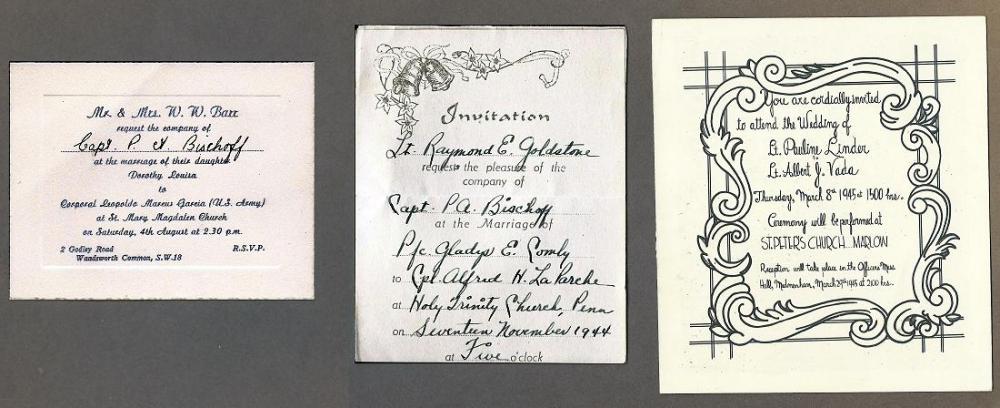 Mr. & Mrs. W. W. Barr
request the company of
Capt. P. A. Bischoff
at the marriage of their daughter
Dorothy Louisa
to
Corporal Leopoldo Marcus Garcia (U.S. Army)
at St. Mary Magdalen Church
on Saturday, 4th August at 2.30 p.m.
2 Godley Road
Wandsworth Common, S.W.18
R.S.V.P.
Invitation
Lt. Raymond E. Goldstone
request the pleasure of the
company of
Capt. P.A. Bischoff
at the Marriage of
Pfc. Gladys E. Comly
to Cpl. Alfred H. LaParche
at Holy Trinity Church, Penn
on Seventeen November 1944
at Five o'clock
You are cordially invited
to attend the Wedding of
Lt. Pauline Linder
to
Lt. Albert J. Vada
Thursday, March 8th 1945 at 1500 hrs.
Ceremony will be performed at
ST. PETER'S CHURCH MARLOW
Reception will take place in the Officers Mess
Hall, Medmenham, March 1945 at 2100 hrs.